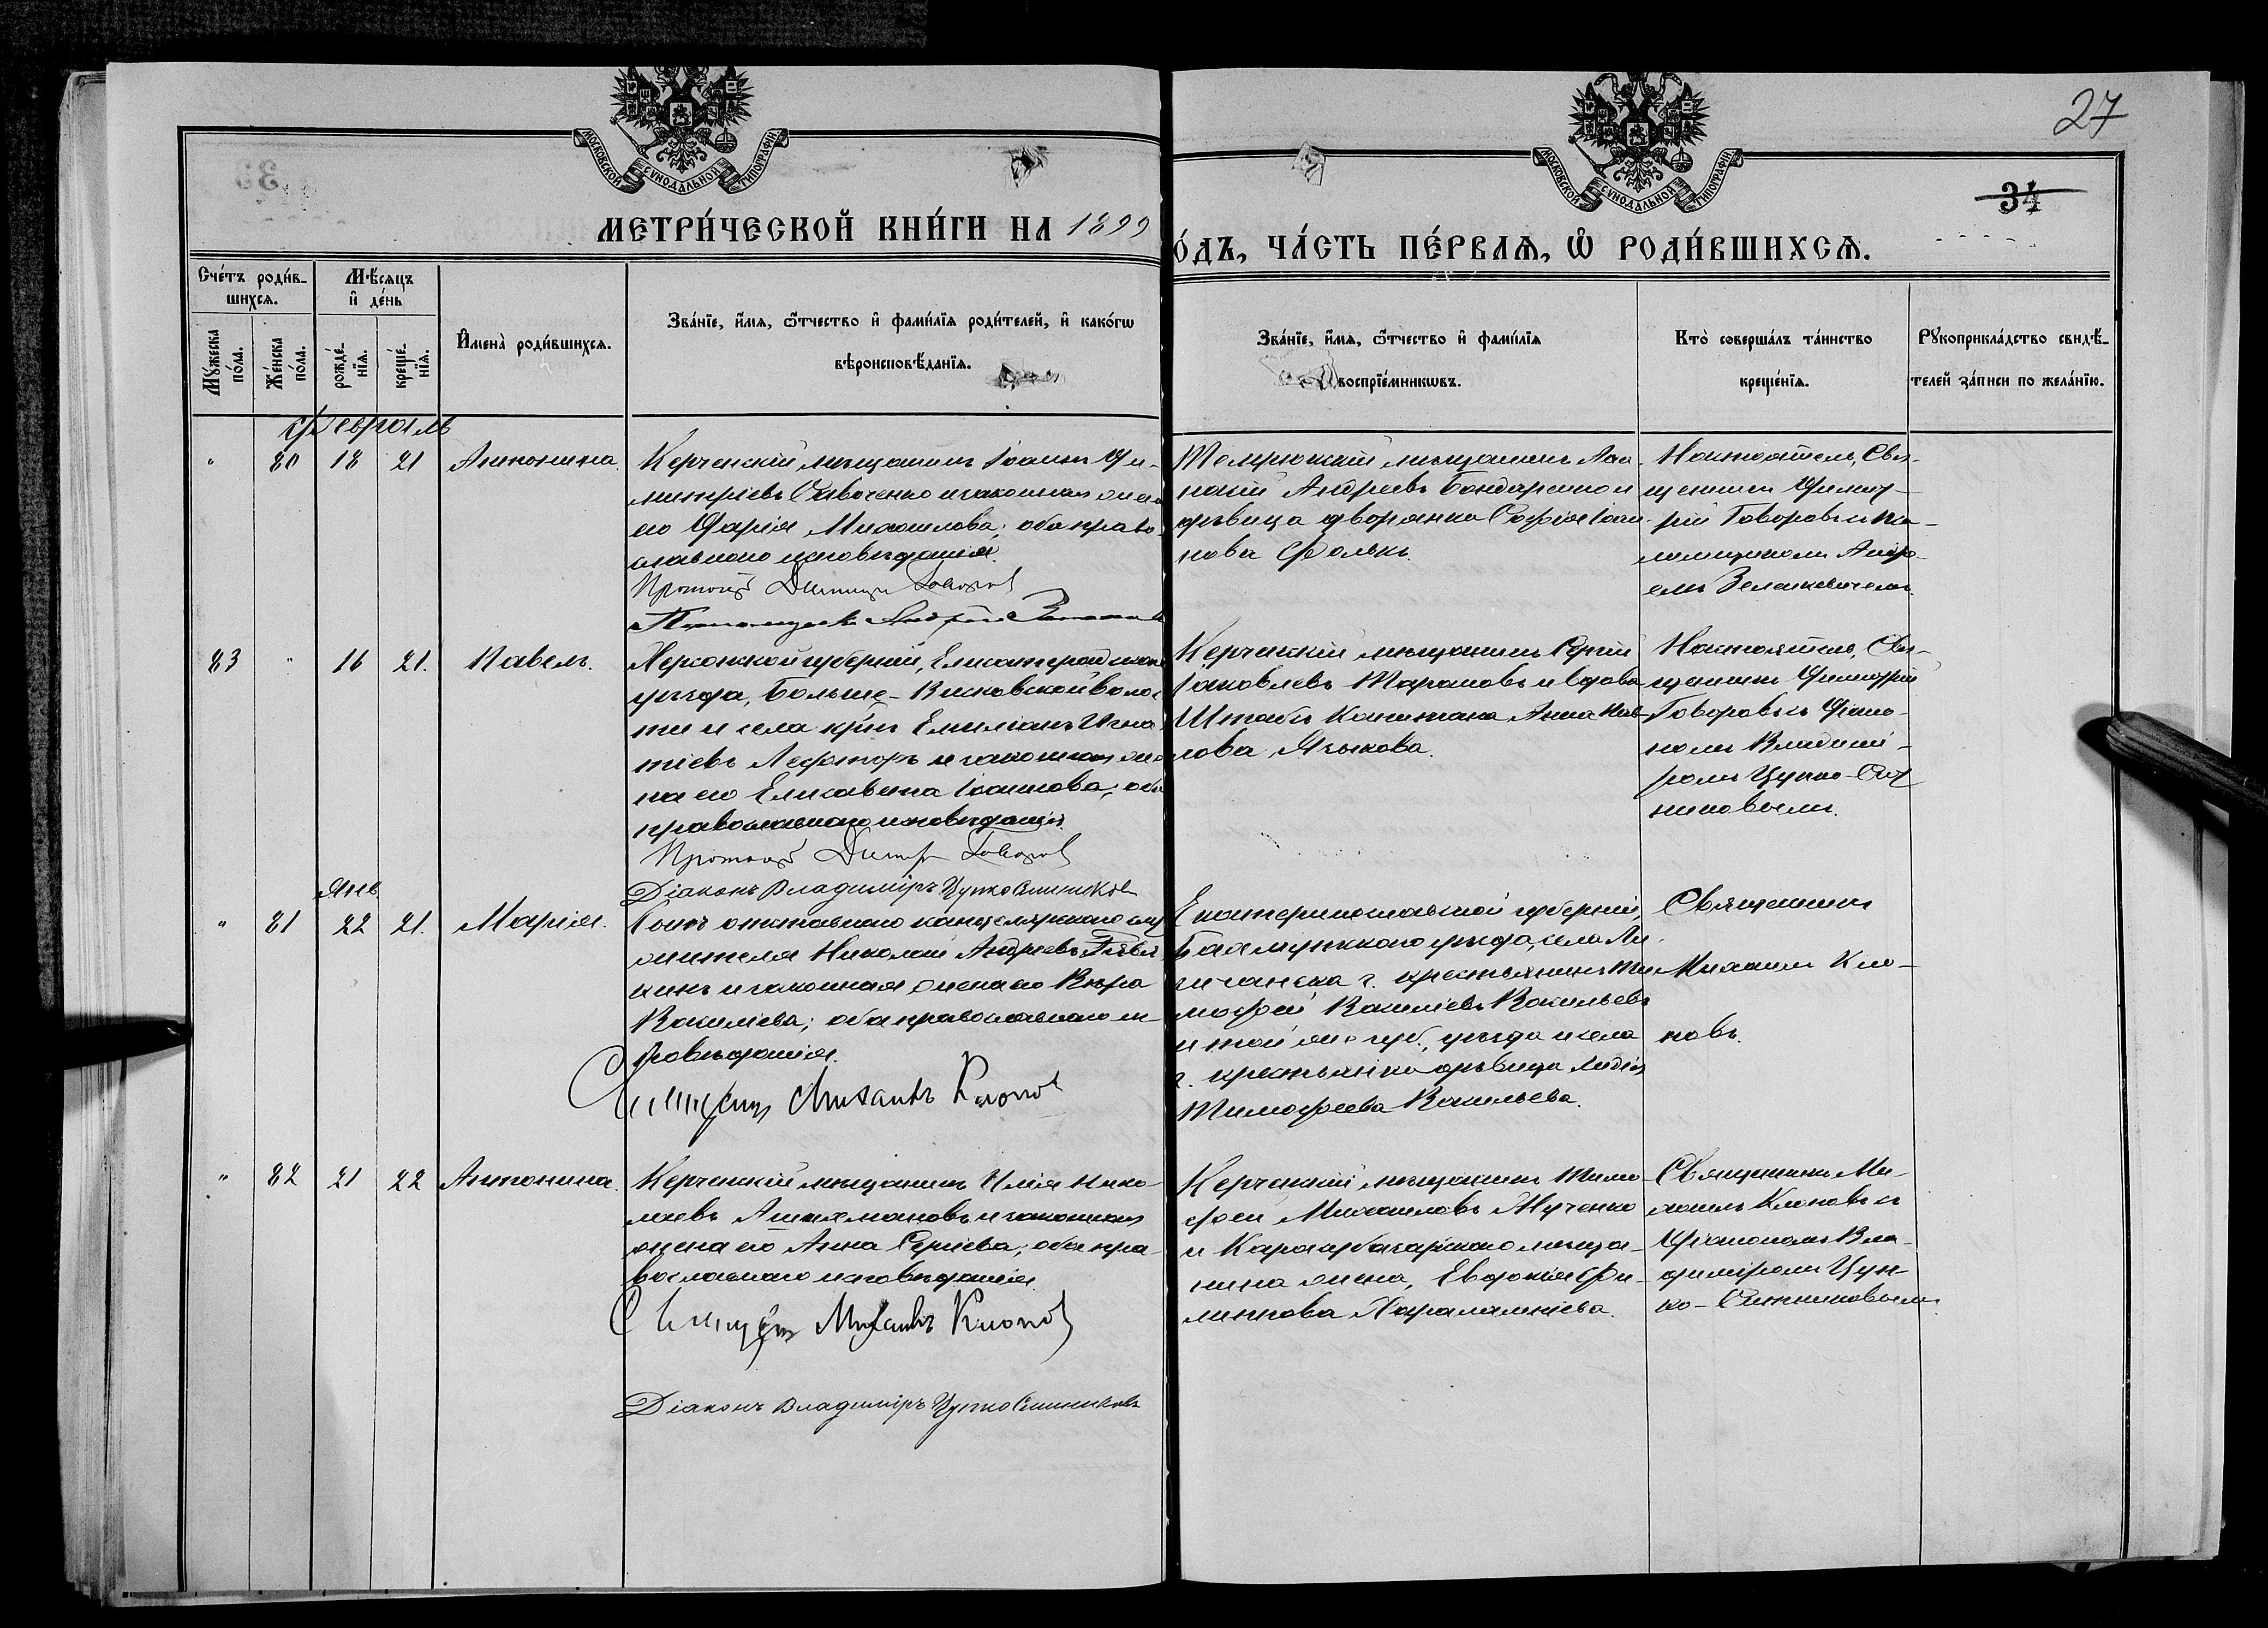 МОСКОВСКОЙ СѴНОДАЛЬНОЙ ТИПОГРАФІИ
МОСКОВСКОЙ СѴНОДАЛЬНОЙ ТИПОГРАФІИ
27
34
МЕТРИ́ЧЕСКОЙ КНИ́ГИ НА 1899
О́ДЪ, ЧА́СТЬ ПЕ́РВАѦ, Ѡ РОДИ́ВШИХСѦ.
Сче́тъ роди́в-
шихсѧ.
Мѣ́сѧцъ
и҆ де́нь
Мꙋ́жеска
по́ла.
Же́нска
по́ла.
рожде́-
нїѧ.
креще́-
нїѧ.
И҆мена̀ роди́вшихсѧ.
Зва́нїе, и҆́мѧ, ѻ҆́тчество и҆ фами́лїѧ роди́телей, и҆ како́гѡ
вѣроисповѣ́данїѧ.
Зва́нїе, и҆́мѧ, ѻ҆́тчество и҆ фами́лїѧ
воспрїе́мникѡвъ.
Кто̀ соверша́лъ та́инство
креще́нїѧ.
Рꙋкоприкла́дство свидѣ́-
телей за́писи по жела́нїю.
Февраль
" 80 18 21 Антонина.
Керченскій мѣщанинъ Іоаннъ Ди-
митріевъ Савченко и законная жена
его Дарія Михаилова; оба право-
славнаго исповѣданія.
Протоіер Димитр Говоров
Псаломщикъ Андрей
Темрюкскій мѣщанинъ
Андреевъ Бондаренко и
дѣвица дворянка Софія Іоан-
нова Фольк.
Настоятель, Свя-
щенникъ Димит-
рій Говоровъ съ пса-
ломщикомъ Андре-
емъ Зеленкевичемъ.
83 " 16 21. Павелъ.
Херсонской губерніи, Елисаветградскаго
уѣзда, Больше-Висковской волос-
ти и села кр-нъ Емиліанъ Игна-
тіевъ и законная же-
на его Елисавета Іоаннова; оба
православнаго исповѣданія.
Протоіер Димитр Говоров
Діаконъ Владиміръ Цупко Ситниковъ
Керченскій мѣщанинъ Сергій
Іаковлевъ Тарановъ и вдова
Штабсъ Капитана Анна Пав-
лова Языкова.
Настоятель, Свя-
щенникъ Димитрій
Говоровъ съ Діако-
номъ Владимі-
ромъ Цупко-Сит-
никовымъ.
Янв.
" 81 22 21. Марія.
Сынъ отставнаго канцелярскаго слу
жителя Николай Андреевъ
и законная жена его Вѣра
Василіева; оба православнаго ис-
повѣданія.
Священникъ Михаилъ Клоповъ
Екатеринославской губерніи,
Бахмутскаго уѣзда, села Ли-
сичанска г. крестьянинъ Ти-
мофей Василіевъ Васильевъ
и той же губ., уѣзда и села
г. крестьянка дѣвица Лидія
Тимофеева Васильева.
Священникъ
Михаилъ Кло-
повъ.
" 82 21 22 Антонина.
Керченскій мѣщанинъ Илія Нико-
лаевъ и законная
жена его Анна Сергіева; оба пра-
вославнаго исповѣданія.
Священникъ Михаилъ Клоповъ
Діаконъ Владиміръ Цупко Ситниковъ
Керченскій мѣщанинъ Тимо-
фей Михаиловъ Мученко
и Карасубазарскаго мѣща-
нина жена, Евдокія Фи-
липпова Харалампіева.
Священникъ Ми-
хаилъ Клоповъ съ
Діакономъ Вла-
диміромъ Цуп-
ко-Ситниковымъ.